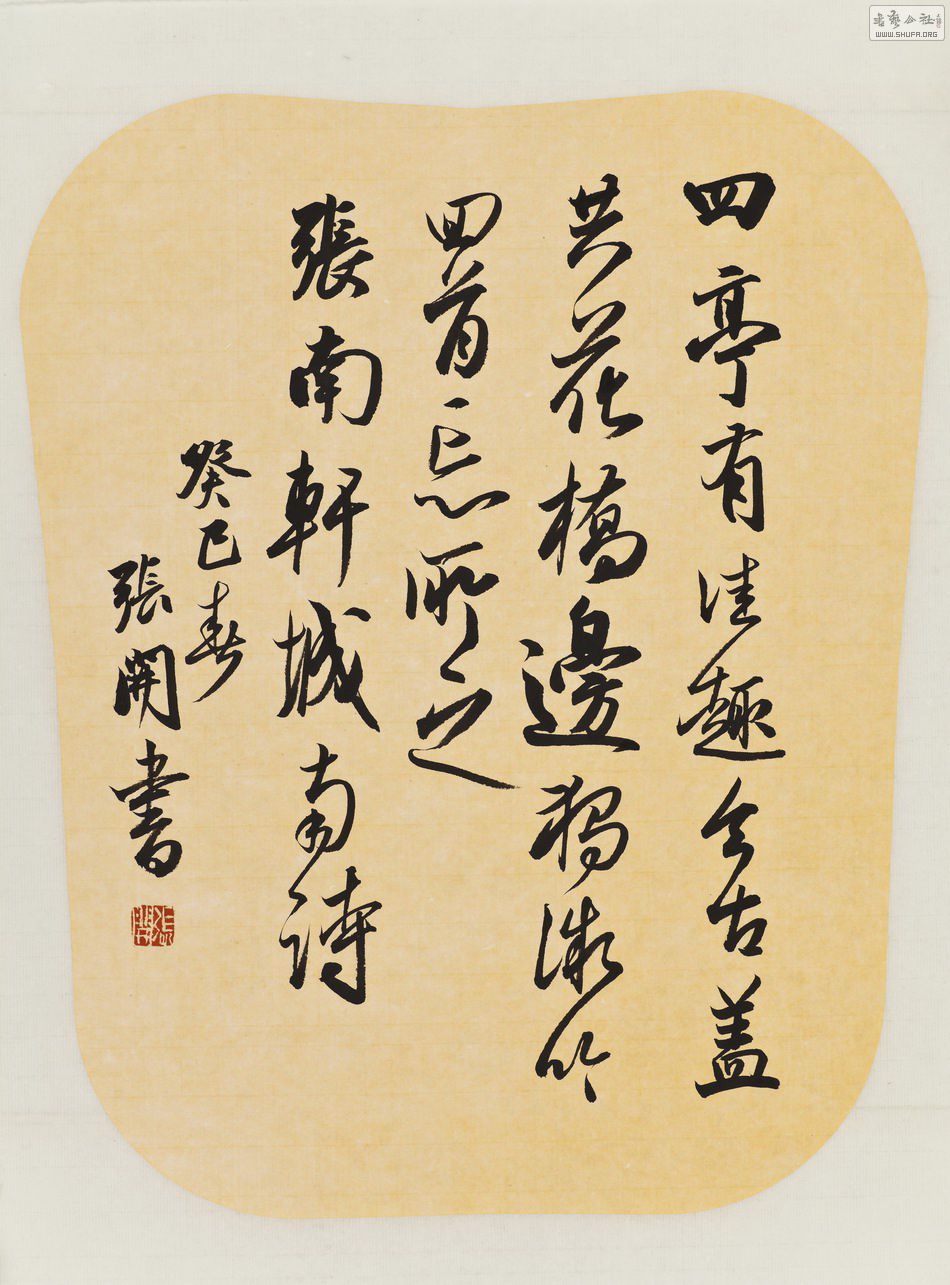 四亭有佳趣今古盖
共花橋邊獨微吟
回首忘所之
張南軒城南詩
癸巳春
張開書
書藝公社
WWW.SHUFA.ORG